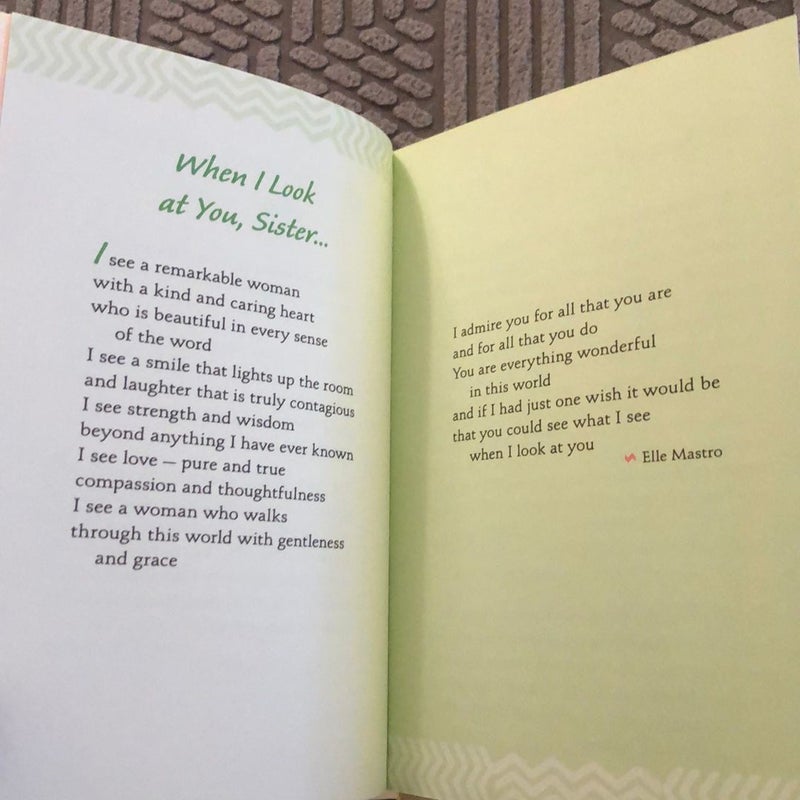 When I Look
at You, Sister...
I see a remarkable woman
with a kind and caring heart
who is beautiful in every sense
of the word
I see a smile that lights up the room
and laughter that is truly contagious
I see strength and wisdom
beyond anything I have ever known
I see love — pure and true
compassion and thoughtfulness
I see a woman who walks
through this world with gentleness
and grace
I admire you for all that you are
and for all that you do
You are everything wonderful
in this world
and if I had just one wish it would be
that you could see what I see
when I look at you
Elle Mastro